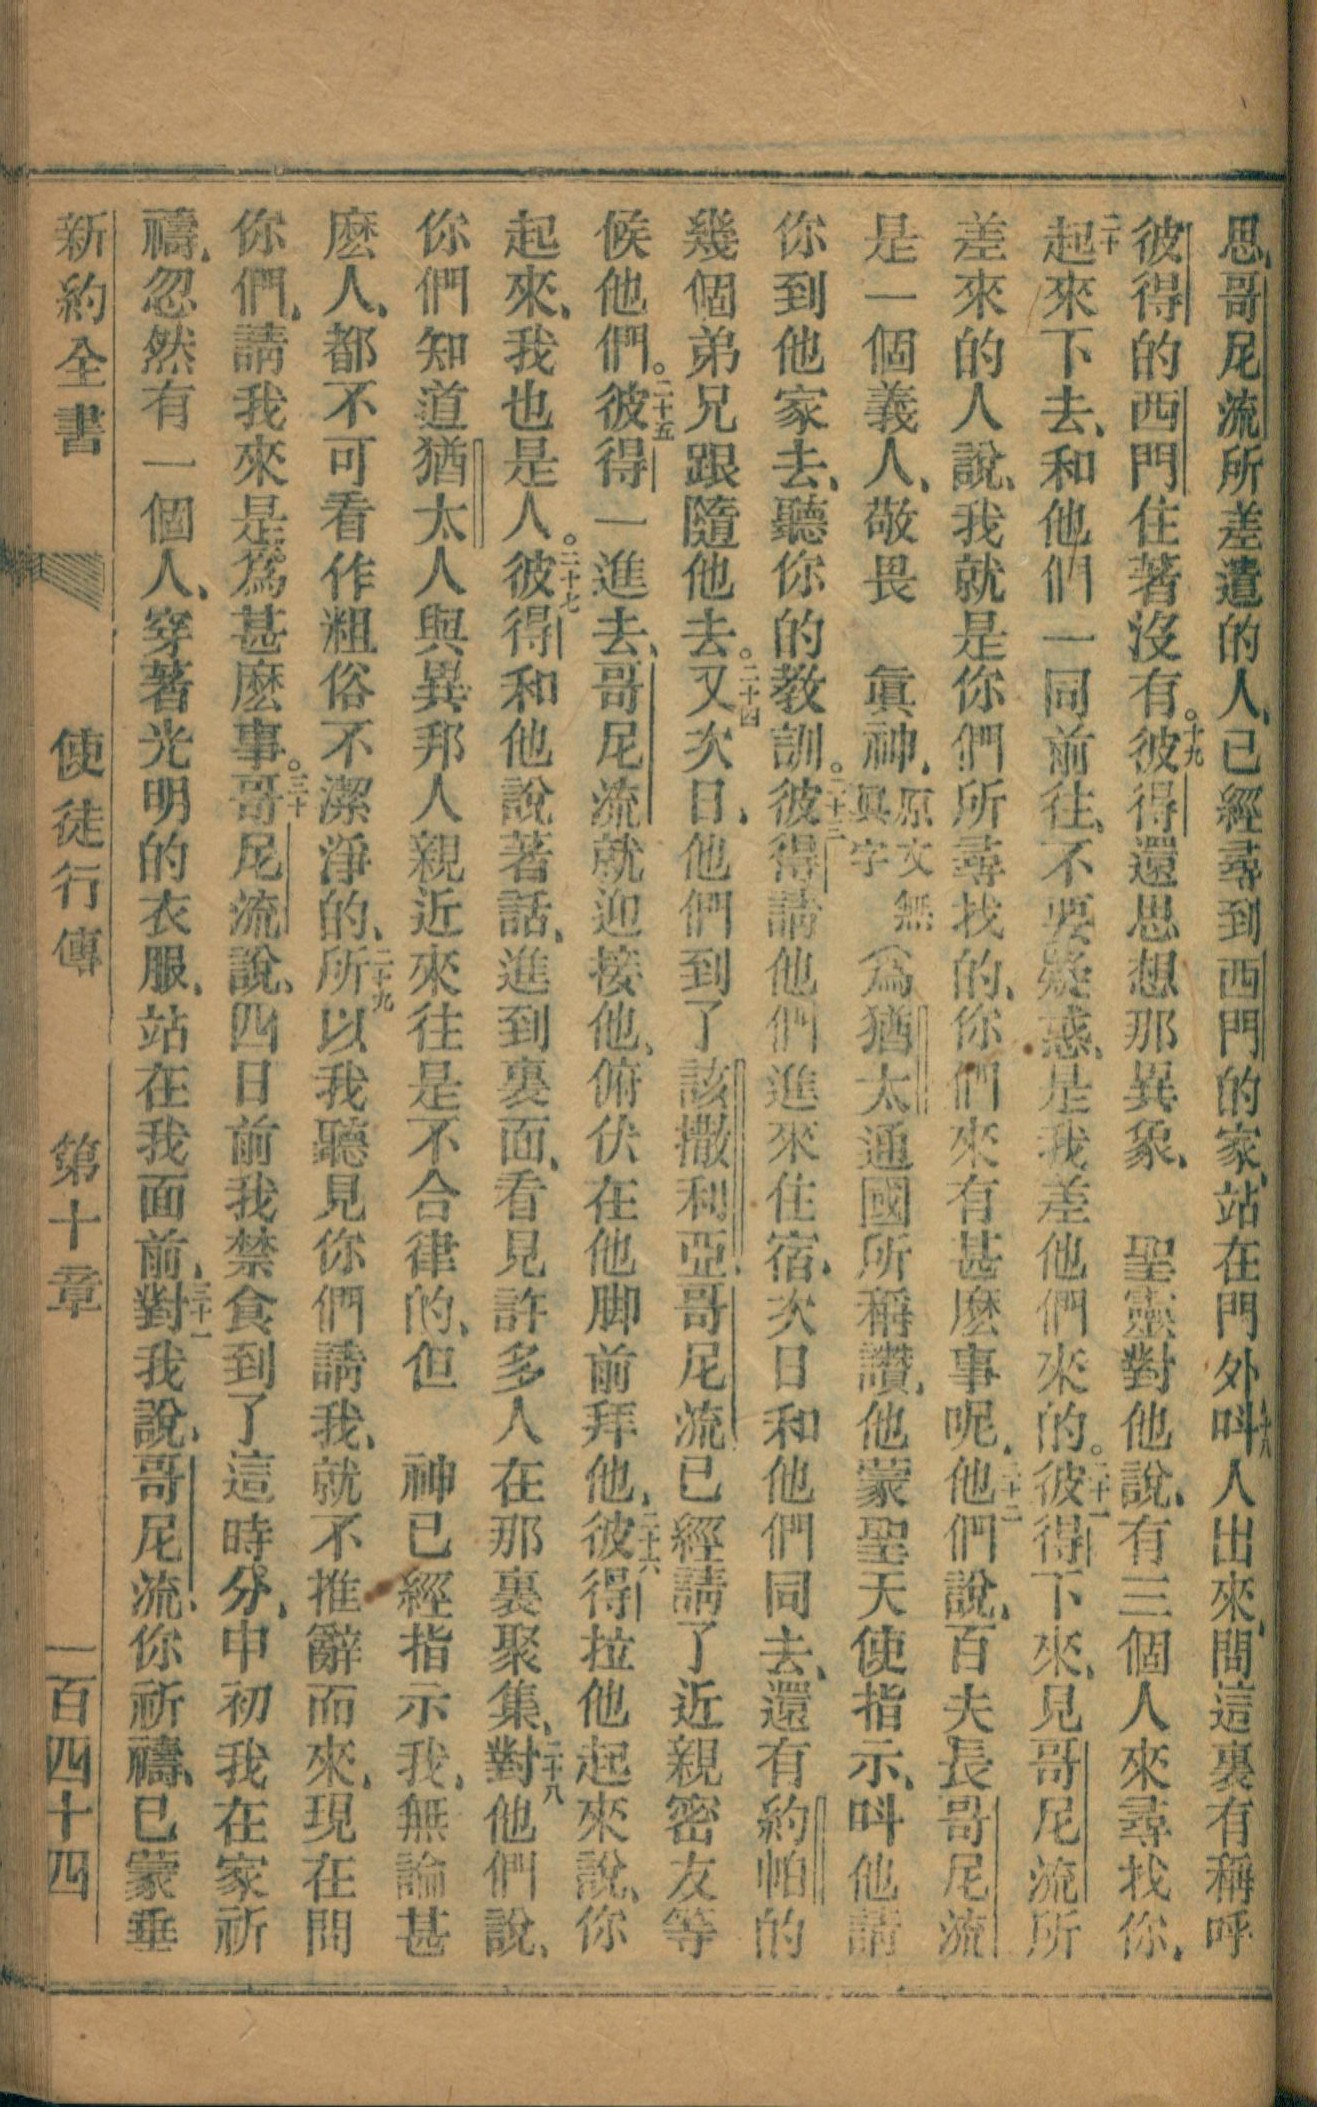 思、哥尼流所差遣的人、已經尋到西門的家、站在門外、十八呌人出來、問這裏有稱呼
彼得的西門住著沒有。十九彼得還思想那異象、　聖靈對他說、有三個人來尋找你、
二十起來下去、和他們一同前往、不要疑惑、是我差他們來的。二十一彼得下來、見哥尼流所
差來的人說、我就是你們所尋找的、你們來有甚麽事呢、二十二他們說、百夫長哥尼流
是一個義人、敬畏　眞神、原文無眞字（爲猶太通國所稱讚、他蒙聖天使指示、呌他請
你到他家去、聽你的教訓。二十三彼得請他們進來住宿、次日和他們同去、還有約帕的
幾個弟兄跟隨他去。二十四又次日、他們到了該撒利亞、哥尼流已經請了近親密友等
候他們。二十五彼得一進去、哥尼流就迎接他、俯伏在他脚前拜他、二十六彼得拉他起來說、你
起來、我也是人。二十七彼得和他說著話、進到裏面、看見許多人在那裏聚集、二十八對他們說、
你們知道猶太人與異邦人親近來往是不合律的、但　神已經指示我、無論甚
麽人、都不可看作粗俗不潔淨的、二十九所以我聽見你們請我、就不推辭而來、現在問
你們、請我來是爲甚麽事。三十哥尼流說、四日前我禁食到了這時分、申初我在家祈
禱、忽然有一個人、穿著光明的衣服、站在我面前、三十一對我說、哥尼流、你祈禱、已蒙垂
新約全書　使徒行傳　第十章　一百四十四